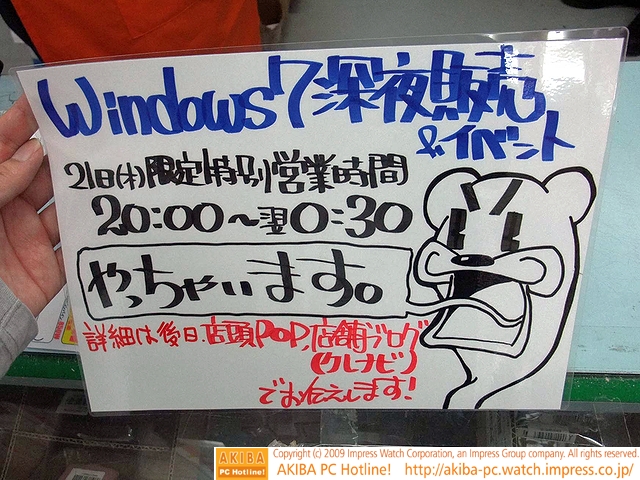 Windows7深夜販売
&イベント
21日(水)限定特別営業時間
20:00～翌0:30
やっちゃいます。
詳細は後日、店頭POP、店舗ブログ
(クレナビ)
でお伝えします!
AKIBA
PC Hotline!
Copyright (c) 2009 Impress Watch Corporation, an Impress Group company. All rights reserved.
AKIBA PC Hotline! http://akiba-pc.watch.impress.co.jp/